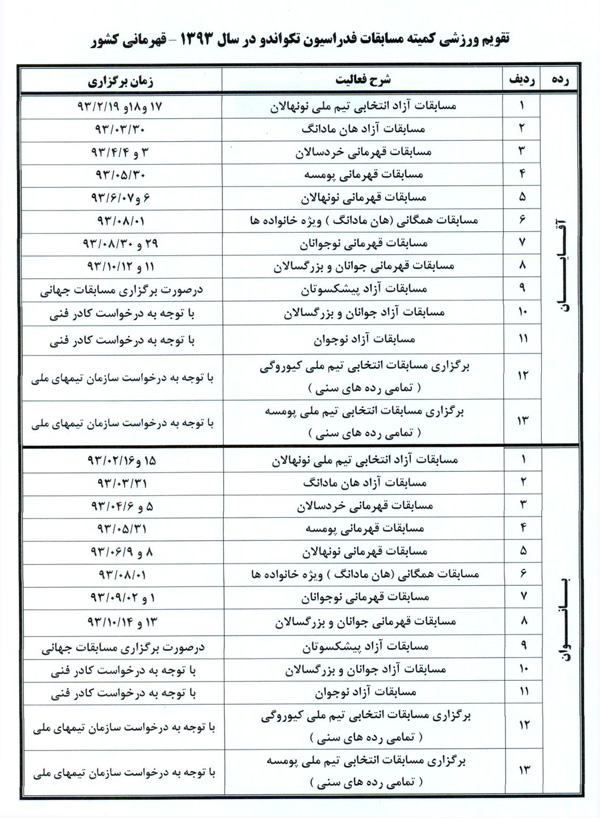 تقویم ورزشی کمیته مسابقات فدراسیون تکواندو در سال ۱۳۹۳ - قهرمانی کشور
رده ردیف شرح فعالیت زمان برگزاری
آقایان
۱ مسابقات آزاد انتخابی تیم ملی نونهالان ۱۷ و۱۸و ۹۳/۲/۱۹
۲ مسابقات آزاد هان مادانگ ۹۳/۰۳/۳۰
۳ مسابقات قهرمانی خردسالان ۳ و ۹۳/۴/۴
۴ مسابقات قهرمانی پومسه ۹۳/۰۵/۳۰
۵ مسابقات قهرمانی نونهالان ۶ و۹۳/۶/۰۷
۶ مسابقات همگانی (هان مادانگ ) ویژه خانواده ها ۹۳/۰۸/۰۱
۷ مسابقات قهرمانی نوجوانان ۲۹ و ۹۳/۰۸/۳۰
۸ مسابقات قهرمانی جوانان و بزرگسالان ۱۱ و ۹۳/۱۰/۱۲
۹ مسابقات آزاد پیشکسوتان درصورت برگزاری مسابقات جهانی
۱۰ مسابقات آزاد جوانان و بزرگسالان با توجه به درخواست کادر فنی
۱۱ مسابقات آزاد نوجوان با توجه به درخواست کادر فنی
۱۲ برگزاری مسابقات انتخابی تیم ملی کیوروگی با توجه به درخواست سازمان تیمهای ملی
( تمامی رده های سنی )
۱۳ برگزاری مسابقات انتخابی تیم ملی پومسه با توجه به درخواست سازمان تیمهای ملی
( تمامی رده های سنی )
بانوان
۱ مسابقات آزاد انتخابی تیم ملی نونهالان ۱۵ و۹۳/۰۲/۱۶
۲ مسابقات آزاد هان مادانگ ۹۳/۰۳/۳۱
۳ مسابقات قهرمانی خردسالان ۵ و ۹۳/۰۴/۶
۴ مسابقات قهرمانی پومسه ۹۳/۰۵/۳۱
۵ مسابقات قهرمانی نونهالان ۸ و ۹۳/۰۶/۹
۶ مسابقات همگانی (هان مادانگ ) ویژه خانواده ها ۹۳/۰۸/۰۱
۷ مسابقات قهرمانی نوجوانان ۱ و ۹۳/۰۹/۰۲
۸ مسابقات قهرمانی جوانان و بزرگسالان ۱۳ و ۹۳/۱۰/۱۴
۹ مسابقات آزاد پیشکسوتان درصورت برگزاری مسابقات جهانی
۱۰ مسابقات آزاد جوانان و بزرگسالان با توجه به درخواست کادر فنی
۱۱ مسابقات آزاد نوجوان با توجه به درخواست کادر فنی
۱۲ برگزاری مسابقات انتخابی تیم ملی کیوروگی با توجه به درخواست سازمان تیمهای ملی
( تمامی رده های سنی )
۱۳ برگزاری مسابقات انتخابی تیم ملی پومسه با توجه به درخواست سازمان تیمهای ملی
( تمامی رده های سنی )